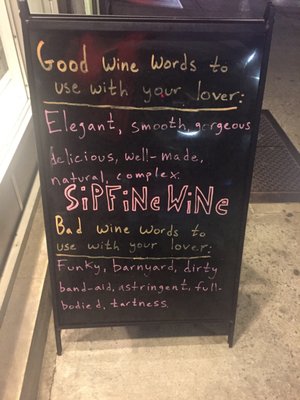 Good wine words to
use with your lover:
Elegant, smooth, gorgeous
delicious, well-made,
natural, complex.
SiPFiNe WiNe
Bad wine words to
use with your lover:
Funky, barnyard, dirty
band-aid, astringent, full-
bodied, tartness.